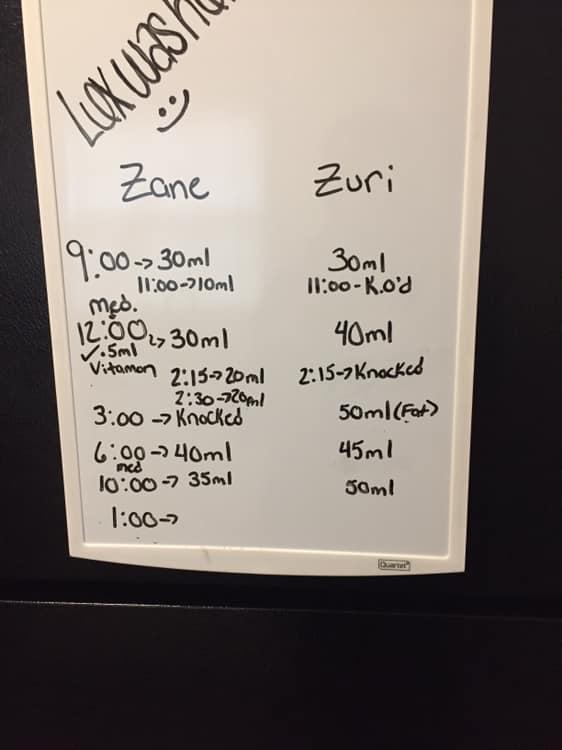 Lux was h
Zane Zuri
9:00->30ml 30ml
11:00->10ml 11:00-K.O'd
med.
12:00->30ml 40ml
✓.5ml
Vitamon 2:15->20ml 2:15->Knocked
2:30->20ml
3:00->Knocked 50ml(Fat)
6:00->40ml 45ml
med
10:00->35ml 50ml
1:00->
Quartet